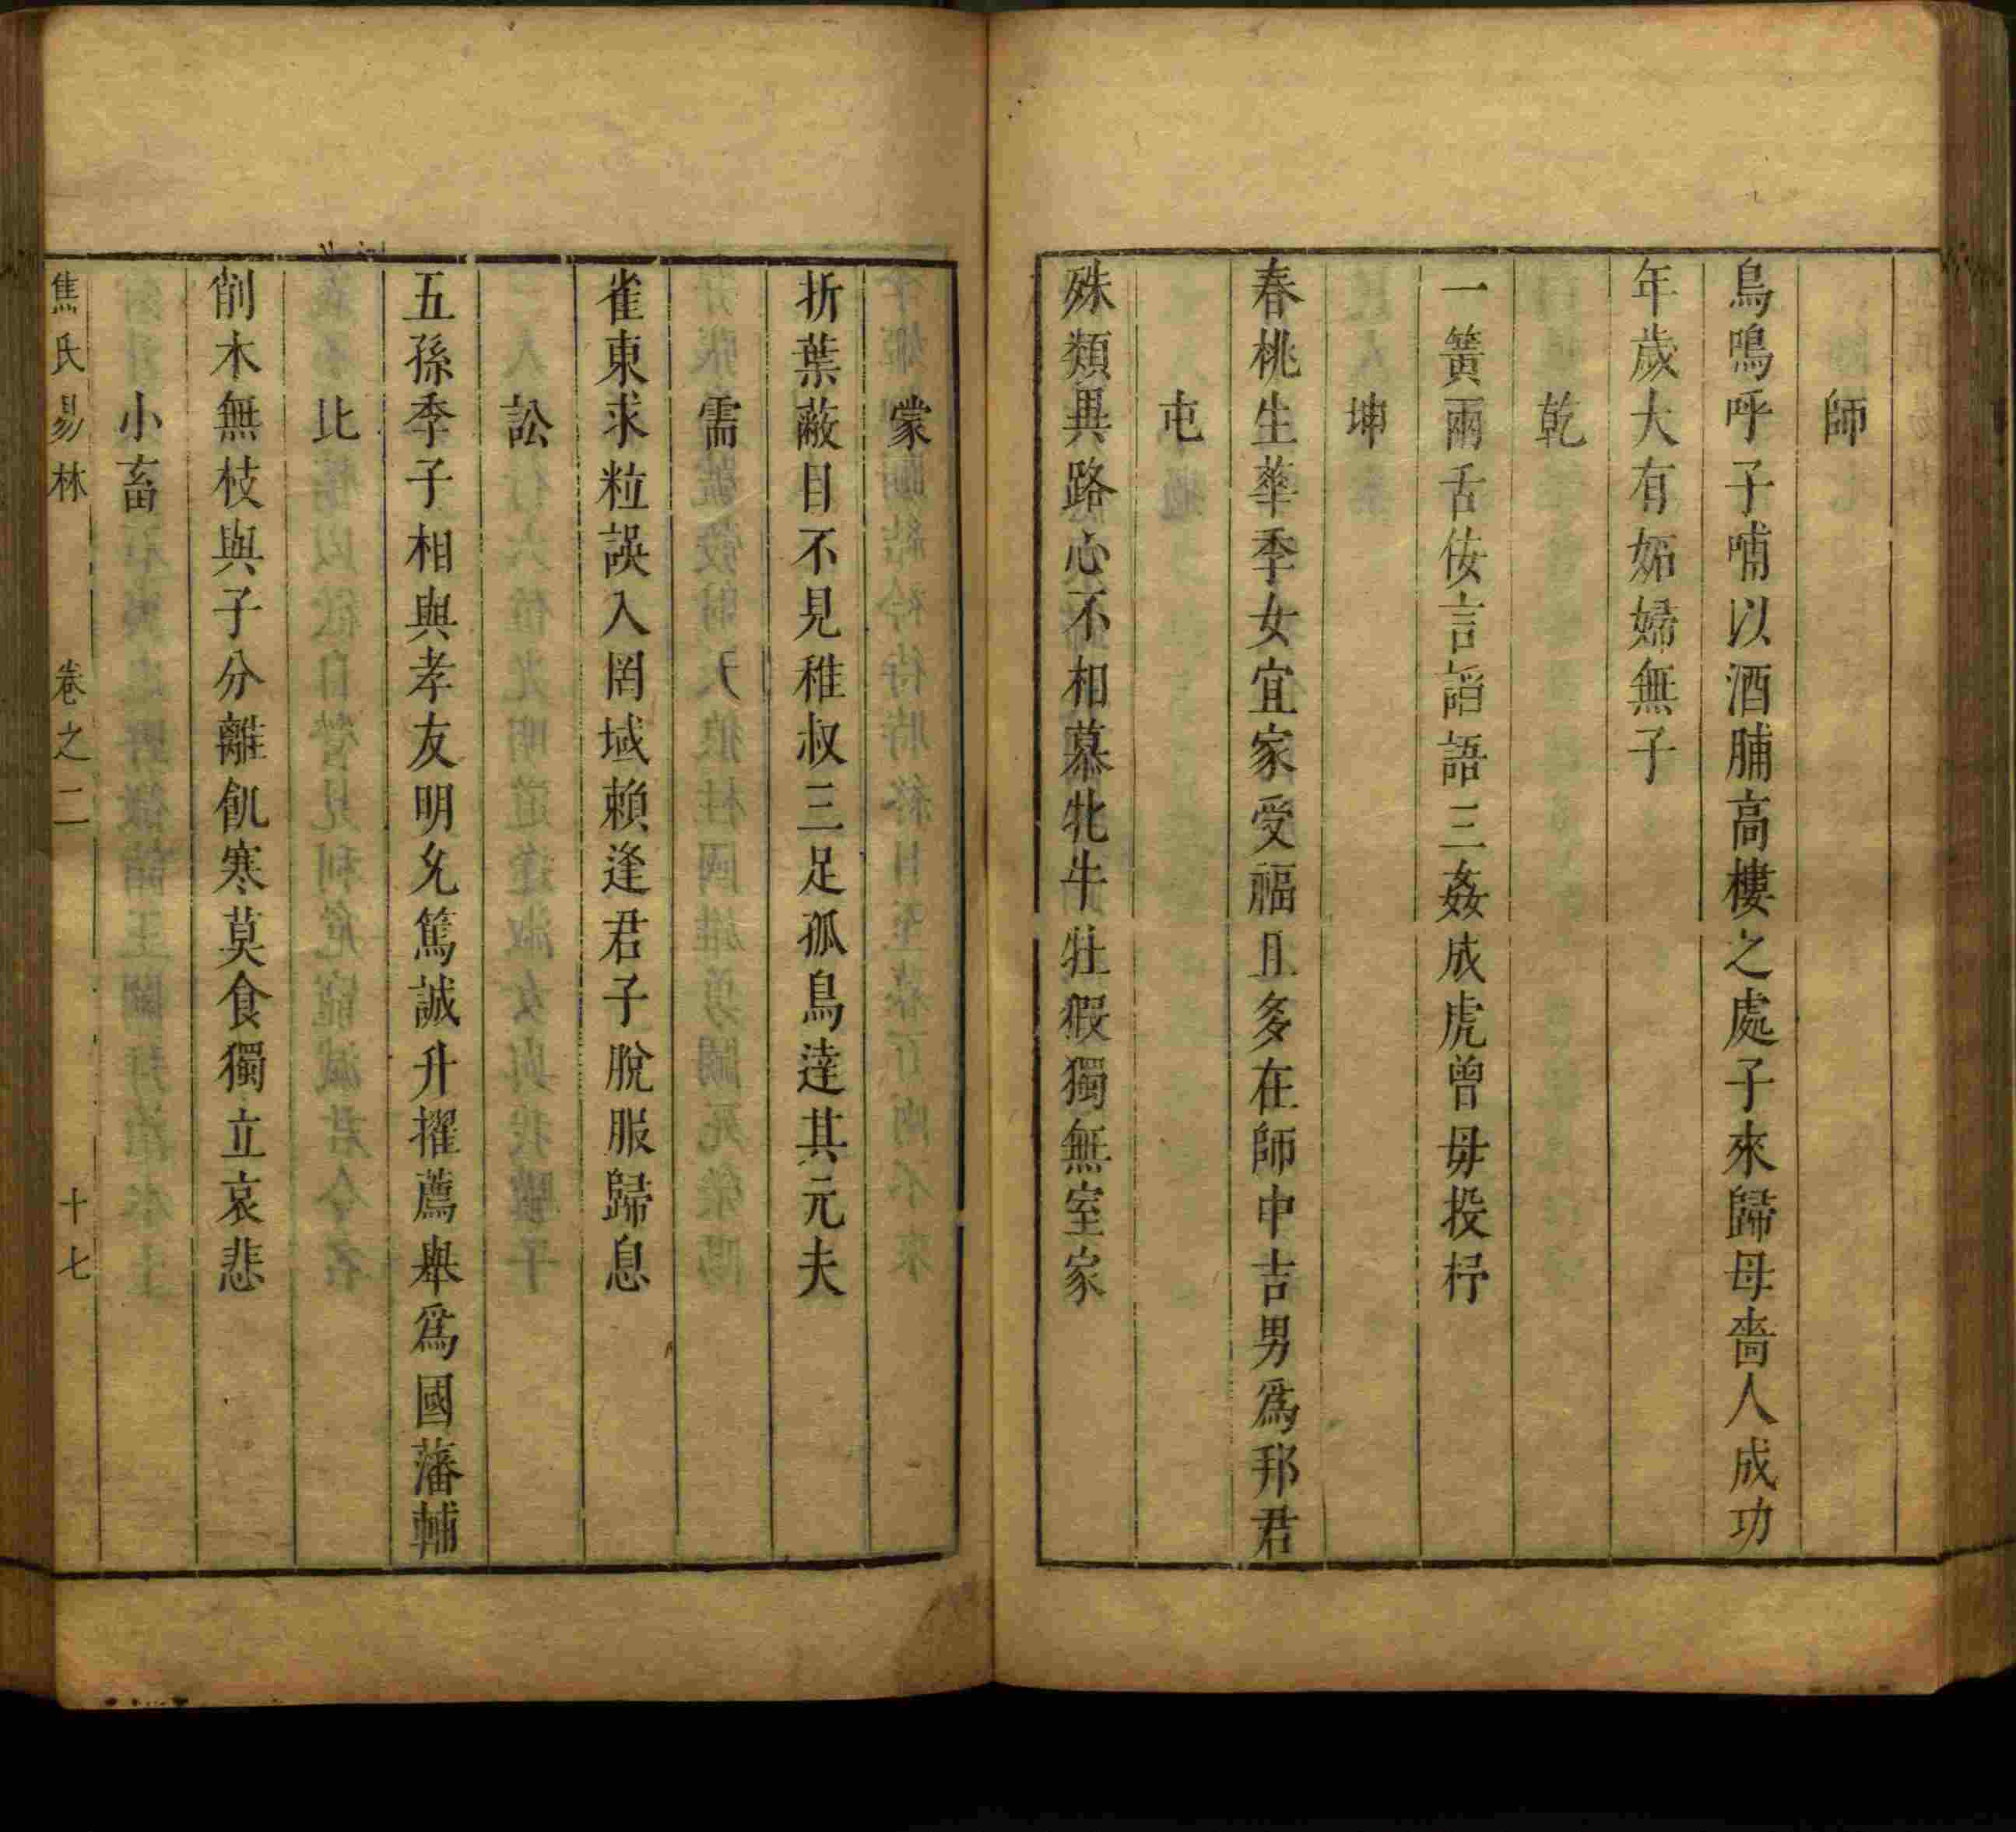 師
鳥鳴呼子哺以酒脯高樓之處子來歸母嗇人成功
年歲大有妬婦無子
乾
一簧兩舌佞言謟語三姦成虎曾毋投杼
坤
春桃生華季女宜家受福且多在師中吉男爲邦君
屯
殊類異路心不相慕牝牛牡猳獨無室家
蒙
折葉蔽目不見稚叔三足孤鳥逹其元夫
需
雀東求粒誤入罔域賴逢君子脫服歸息
訟
五孫季子相與孝友明允篤誠升擢薦舉爲國藩輔
比
削木無枝與子分離飢寒莫食獨立哀悲
小畜
焦氏易林 卷之二 十七